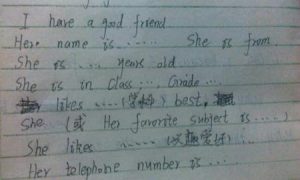 I have a good friend
Here name is ...... She is from
She is ... years old
She is in Class ..., Grade ...
likes ....(学科) best,
She (或 Her favorite subject is .....)
She likes ...... (兴趣爱好) ...
Her telephone number is ...